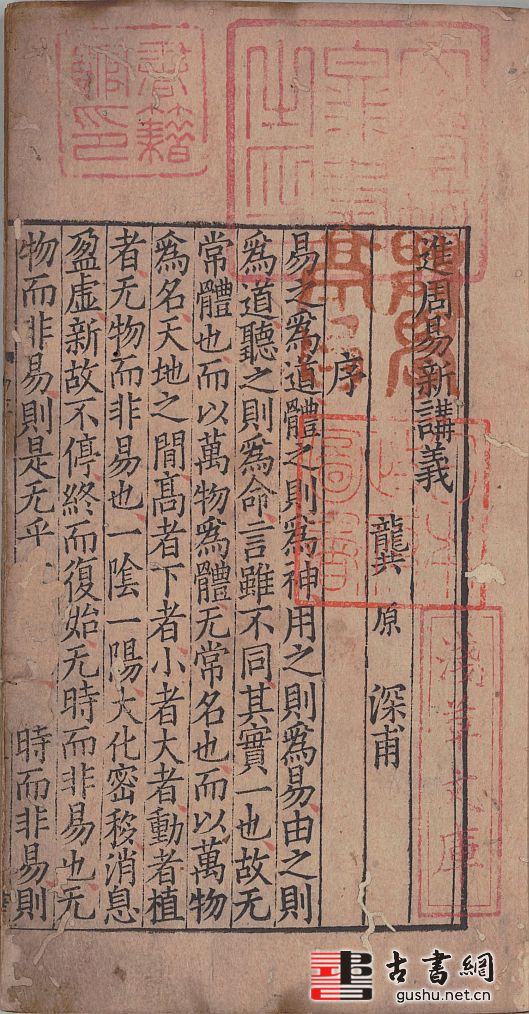 進周易新講義
龔原 深甫
序
易之為道體之則為神用之則為易由之則
為道聽之則為命言雖不同其實一也故无
常體也而以萬物為體无常名也而以萬物
為名天地之間髙者下者小者大者動者植
者无物而非易也一陰一陽大化密移消息
盈虛新故不停終而復始无時而非易也无
物而非易則是无乎
時而非易則
淺草文庫
書籍館印
古書網
gushu.net.cn